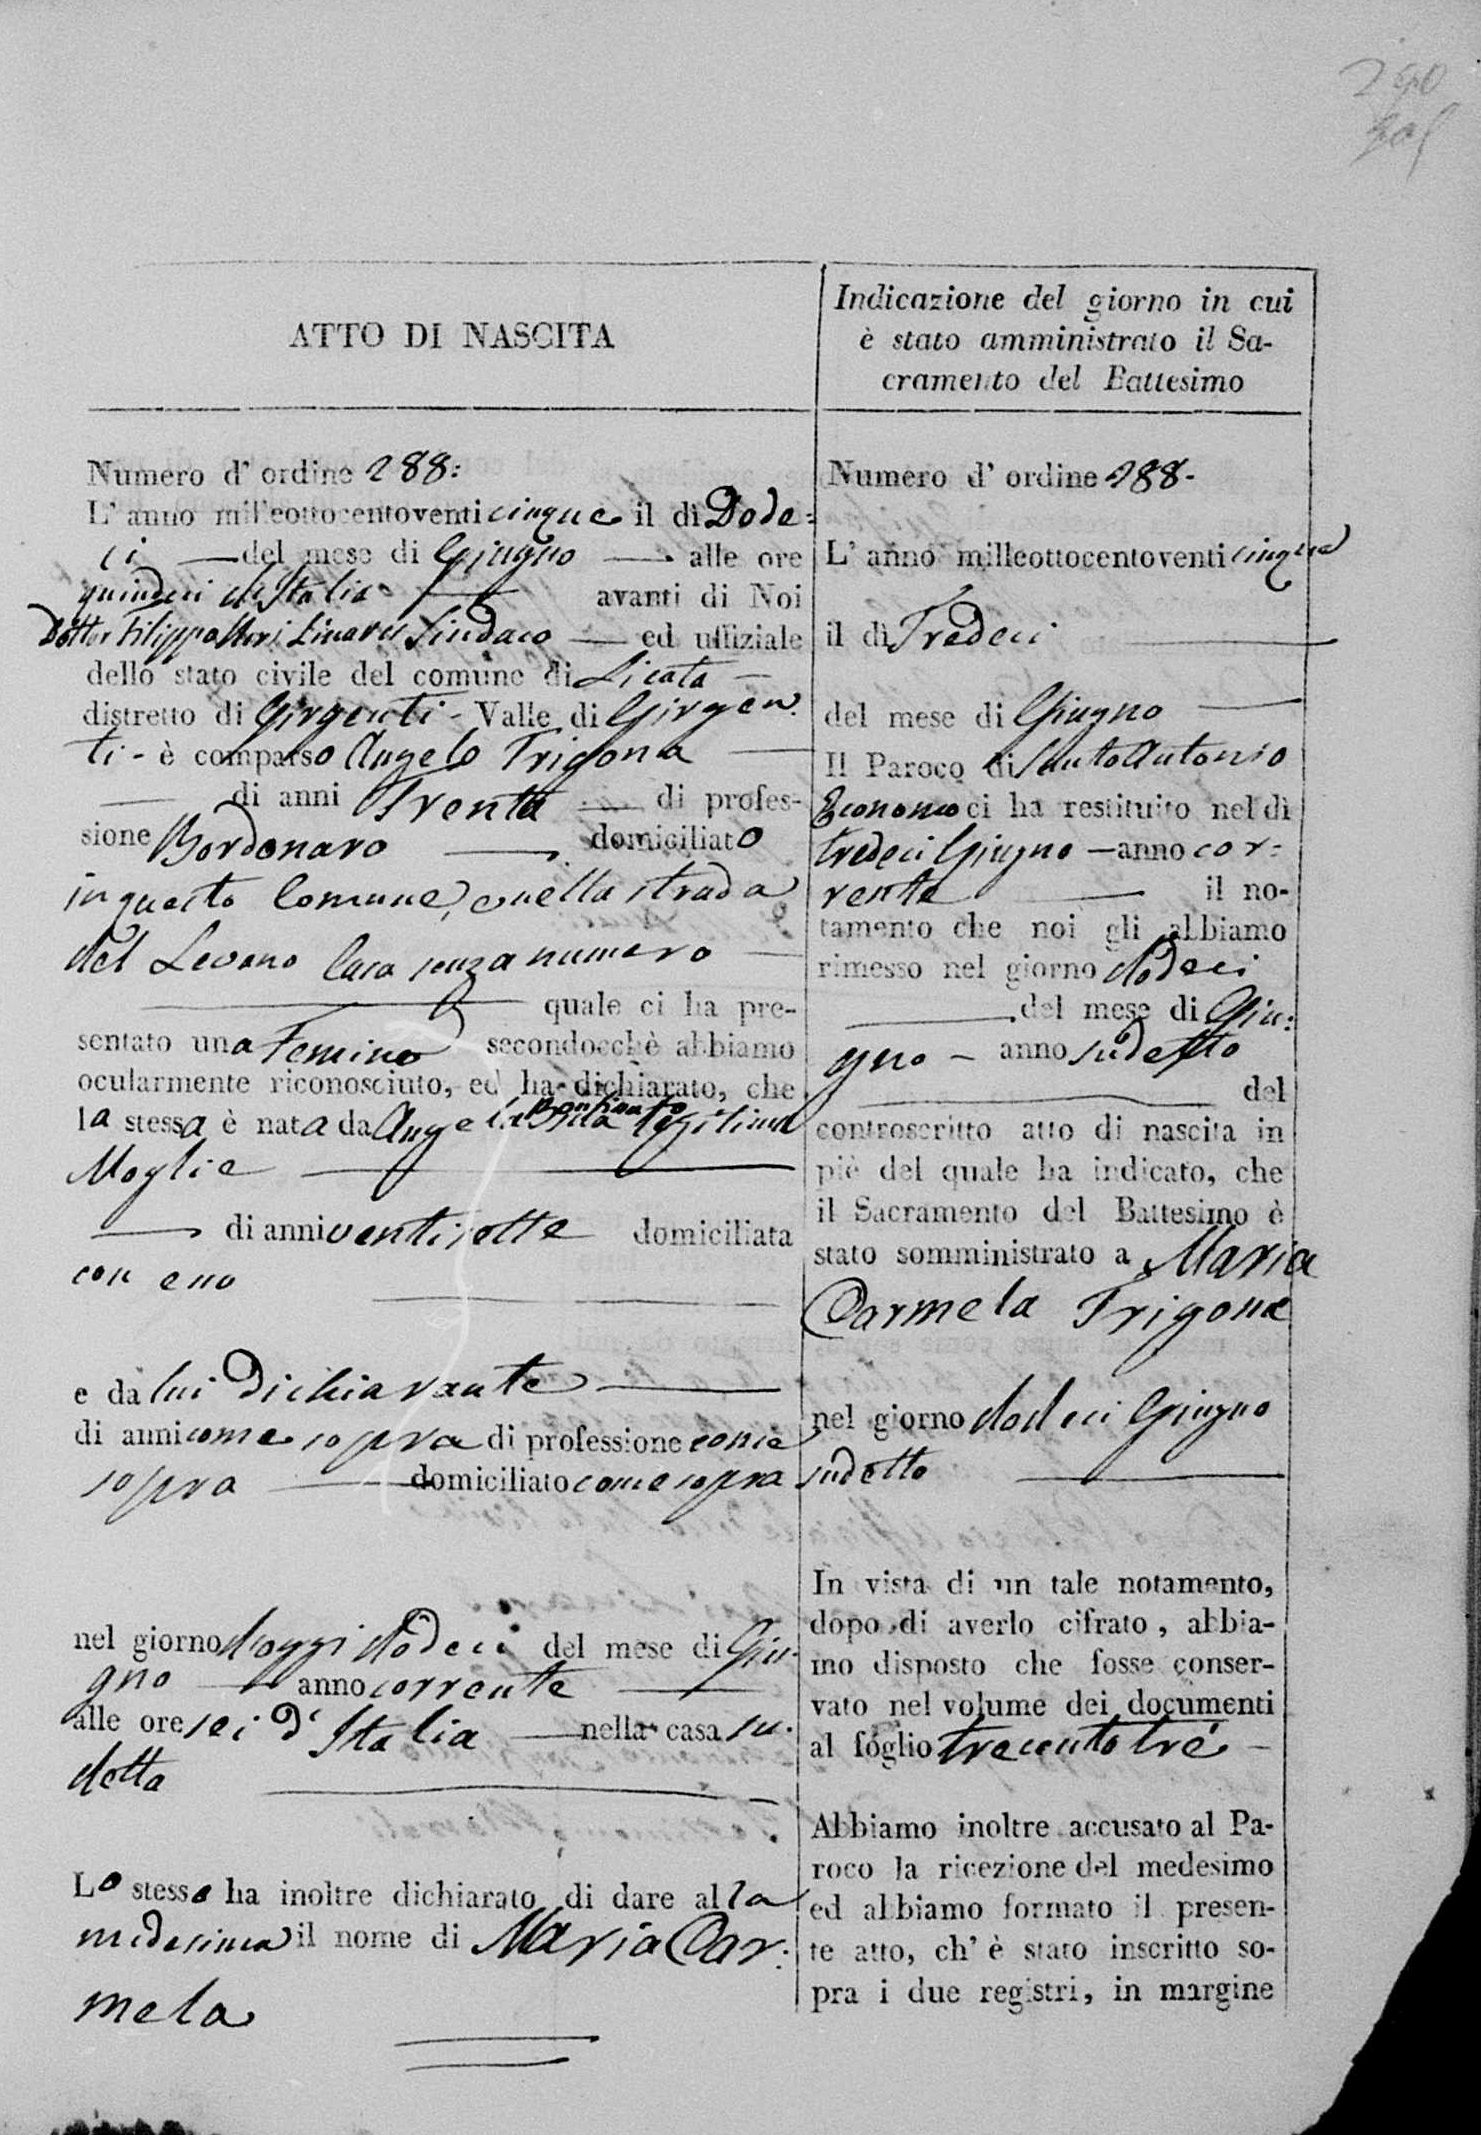 290
ATTO DI NASCITA
Numero d' ordine 288:
L' anno mill'eottocentoventi cinque il dì Dode=
ci — del mese di Giugno — alle ore
quindeci d'Italia — avanti di Noi
Dottor Filippo Linares Sindaco — ed uffiziale
dello stato civile del comune di Licata —
distretto di Girgenti - Valle di Girgen
ti - è comparso Angelo Trigona —
— di anni Trenta — di profes-
sione Bordonaro — domiciliato
in questo Comune, e nella strada
del casa senza numero —
— quale ci ha pre-
sentato una Femina secondocchè abbiamo
ocularmente riconosciuto, ed ha dichiarato, che
la stessa è nata da Angela legitima
Moglie —
— di anni ventisette domiciliata
con esso —
e da lui dichiarante —
di anni come sopra di professione come
sopra — domiciliato come sopra
nel giorno d'oggi dodeci del mese di Giu-
gno — anno corrente —
alle ore sei d'Italia — nella casa su-
detta —
Lo stesso ha inoltre dichiarato di dare alla
medesima il nome di Maria Car:
mela
Indicazione del giorno in cui
è stato amministrato il Sa-
cramento del Battesimo
Numero d' ordine 288-
L' anno milleottocentoventi cinque
il dì Tredeci —
del mese di Giugno —
Il Paroco di Santo Antonio
Economo ci ha restituito nel dì
tredeci Giugno — anno cor:
rente — il no-
tamento che noi gli abbiamo
rimesso nel giorno dodeci
— del mese di Giu:
gno — anno sudetto
— del
controscritto atto di nascita in
piè del quale ha indicato, che
il Sacramento del Battesimo è
stato somministrato a Maria
Carmela Trigona
nel giorno dodeci Giugno
sudetto —
In vista di un tale notamento,
dopo di averlo cifrato, abbia-
mo disposto che fosse conser-
vato nel volume dei documenti
al foglio trecento tré —
Abbiamo inoltre accusato al Pa-
roco la ricezione del medesimo
ed abbiamo formato il presen-
te atto, ch' è stato inscritto so-
pra i due registri, in margine